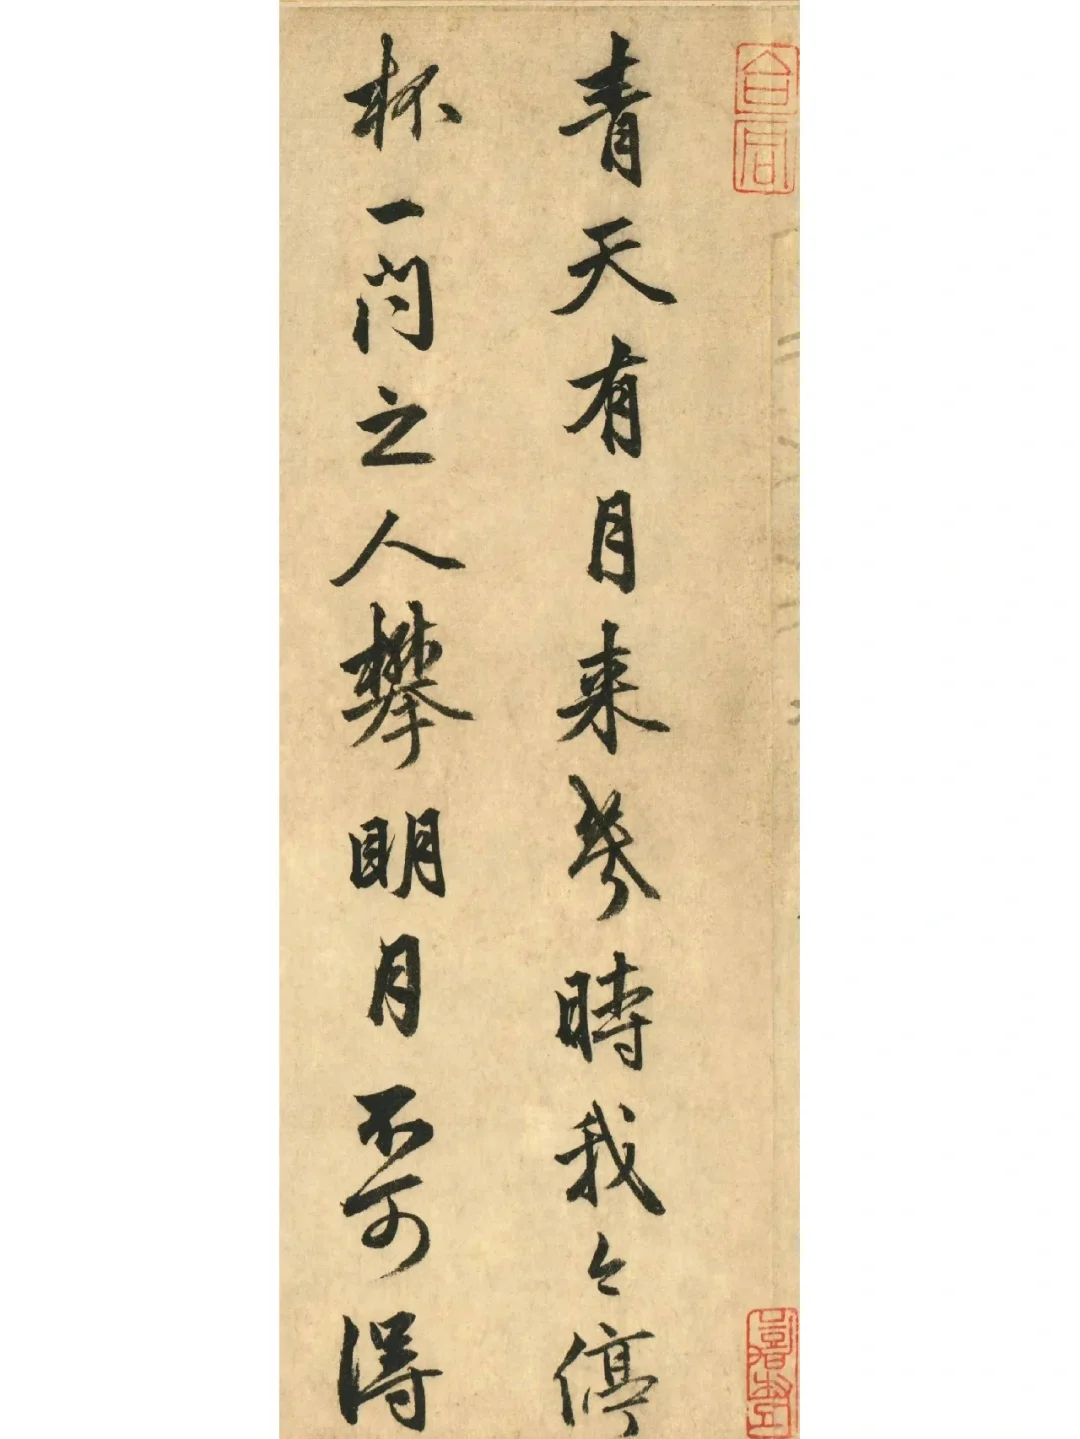 青天有月来幾時我今停
杯一問之人攀明月不可得